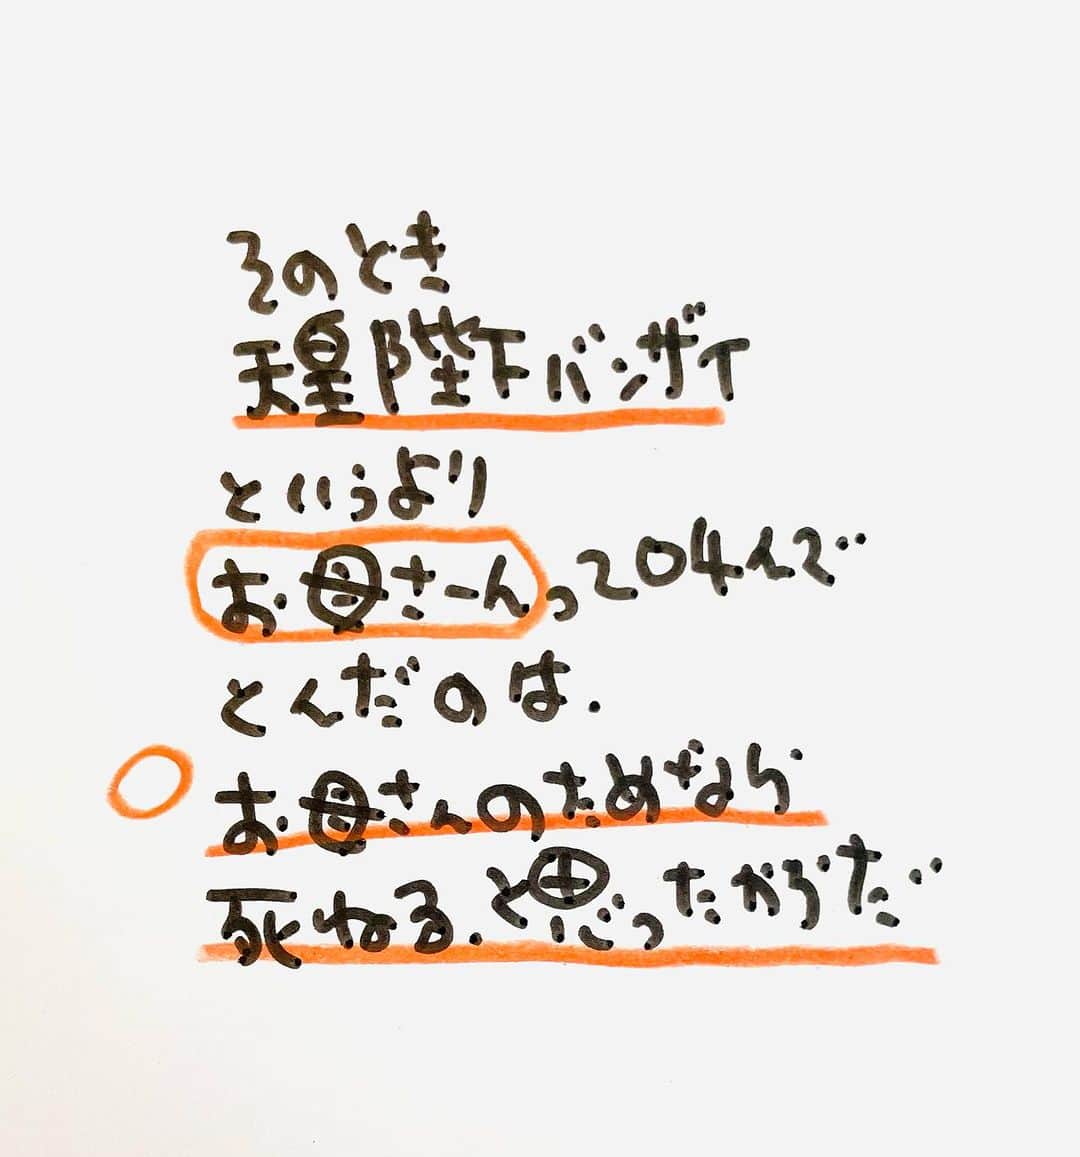 そのとき
天皇陛下バンザイ
というより
お母さーんって叫んで
とんだのは.
お母さんのためなら
死ねる.と思ったからだ